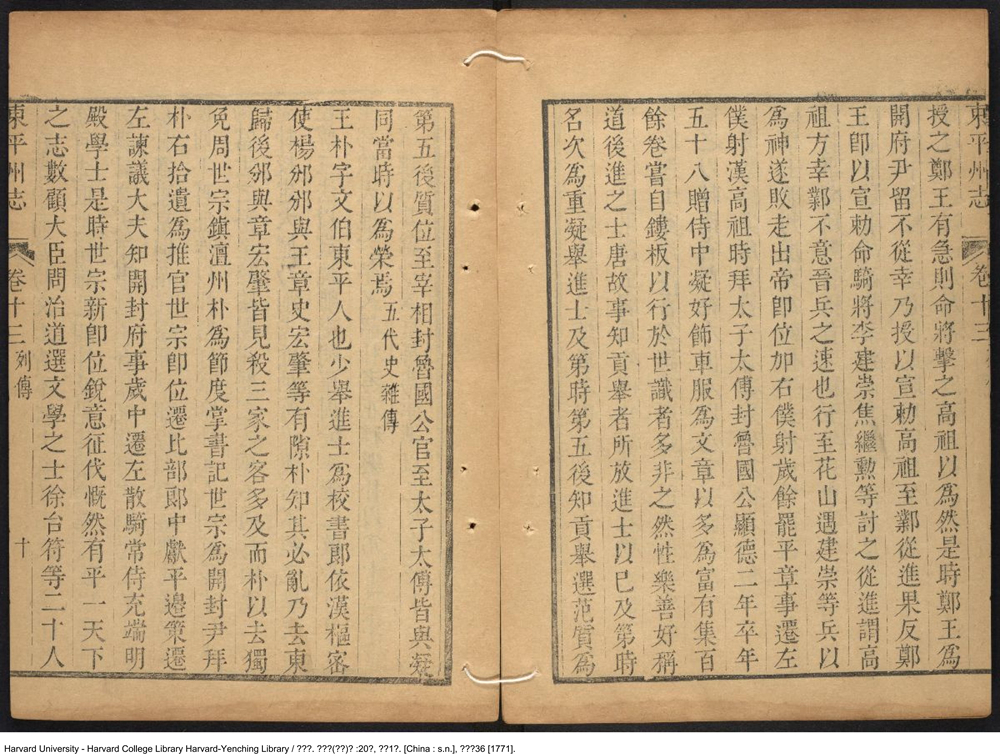 東平州志
卷十三
授之鄭王有急則命將擊之高祖以爲然是時鄭王爲
開府尹留不從幸乃授以宣勅高祖至鄴從進果反鄭
王卽以宣勅命騎將李建崇焦繼勲等討之從進謂高
祖方幸鄴不意晉兵之速也行至花山遇建崇等兵以
爲神遂敗走出帝卽位加右僕射歲餘罷平章事遷左
僕射漢高祖時拜太子太傅封魯國公顯德二年卒年
五十八贈侍中凝好飾車服爲文章以多爲富有集百
餘卷嘗自鏤板以行於世識者多非之然性樂善好稱
道後進之士唐故事知貢舉者所放進士以己及第時
名次爲重凝舉進士及第時第五後知貢舉選范質爲
第五後質位至宰相封魯國公官至太子太傅皆與凝
同當時以爲榮焉 五代史雜傳
王朴字文伯東平人也少舉進士爲校書郎依漢樞密
使楊邠邠與王章史宏肇等有隙朴知其必亂乃去東
歸後邠與章宏肇皆見殺三家之客多及而朴以去獨
免周世宗鎮澶州朴爲節度掌書記世宗爲開封尹拜
朴右拾遺爲推官世宗卽位遷比部郎中獻平邊策遷
左諫議大夫知開封府事歲中遷左散騎常侍充端明
殿學士是時世宗新卽位銳意征伐慨然有平一天下
之志數顧大臣問治道選文學之士徐台符等二十人
東平州志
卷十三 列傳
十
Harvard University - Harvard College Library Harvard-Yenching Library / ???. ???(??)? :20?, ??1?. [China : s.n.], ???36 [1771].